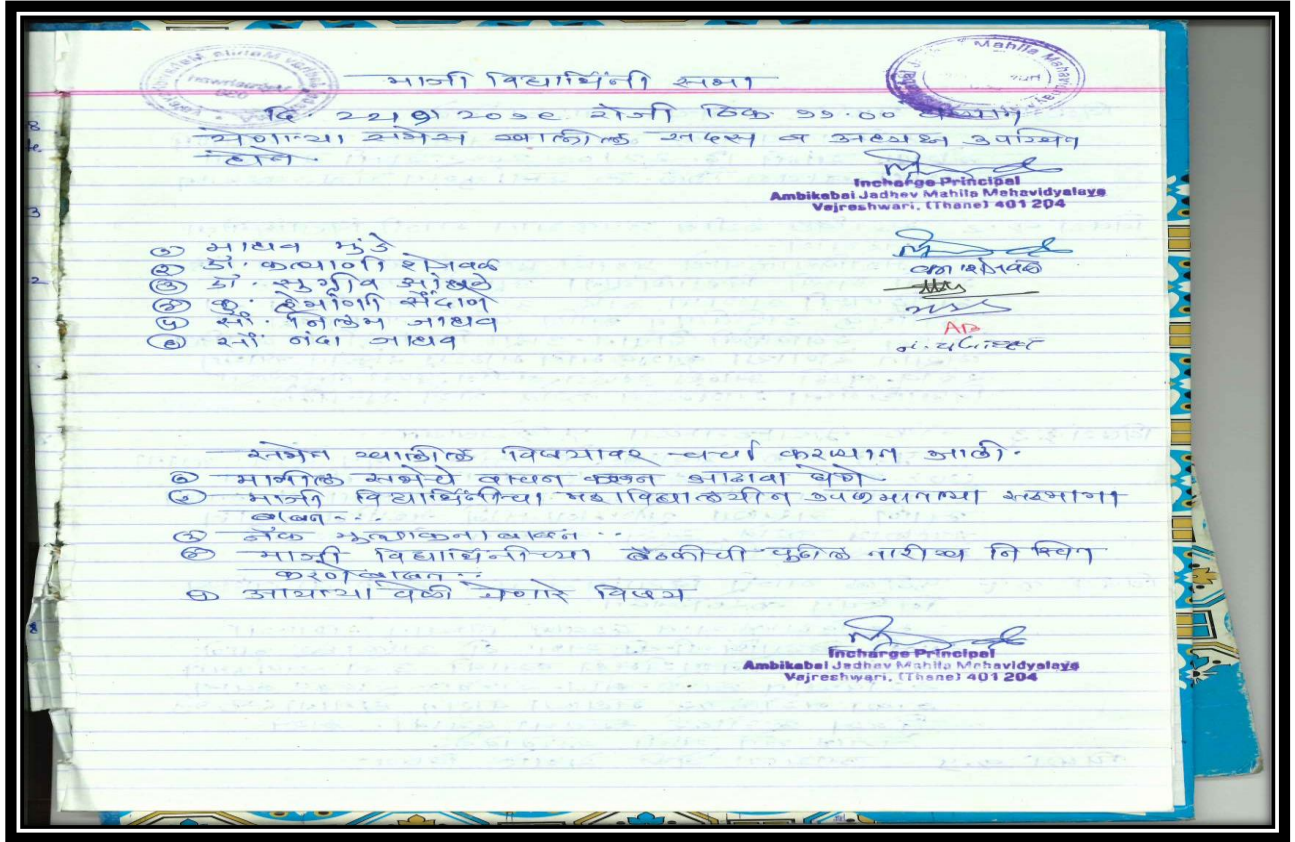 माजी विद्यार्थिनी सभा
दि. २२।१।२०१९ रोजी ठिक ११.०० वाजता
येणाऱ्या सभेस खालील सदस्य व अध्यक्ष उपस्थित
होते.
Incharge Principal
Ambikabai Jadhav Mahila Mahavidyalaya
Vajreshwari, (Thane) 401 204
१) माधव मुंडे
२) डॉ. कल्पना शेगवळ
३) डॉ. सुग्रीव
४) कु. हेमांगी सेंदाने
५) सौ. निलम जाधव
६) सौ. नंदा जाधव
AD
सभेत खालील विषयावर चर्चा करण्यात आली.
१) मागील सभेचे वाचन करून आढावा घेणे
२) माजी विद्यार्थिनीचा महाविद्यालयीन उपक्रमातल्या सहभागा
बाबत...
३) नॅक मुल्यांकनाबाबत..
४) माजी विद्यार्थिनीच्या बैठकीची पुढील तारीख निश्चित
करणेबाबत..
५) आयत्या वेळी येणारे विषय
Incharge Principal
Ambikabai Jadhav Mahila Mahavidyalaya
Vajreshwari, (Thane) 401 204